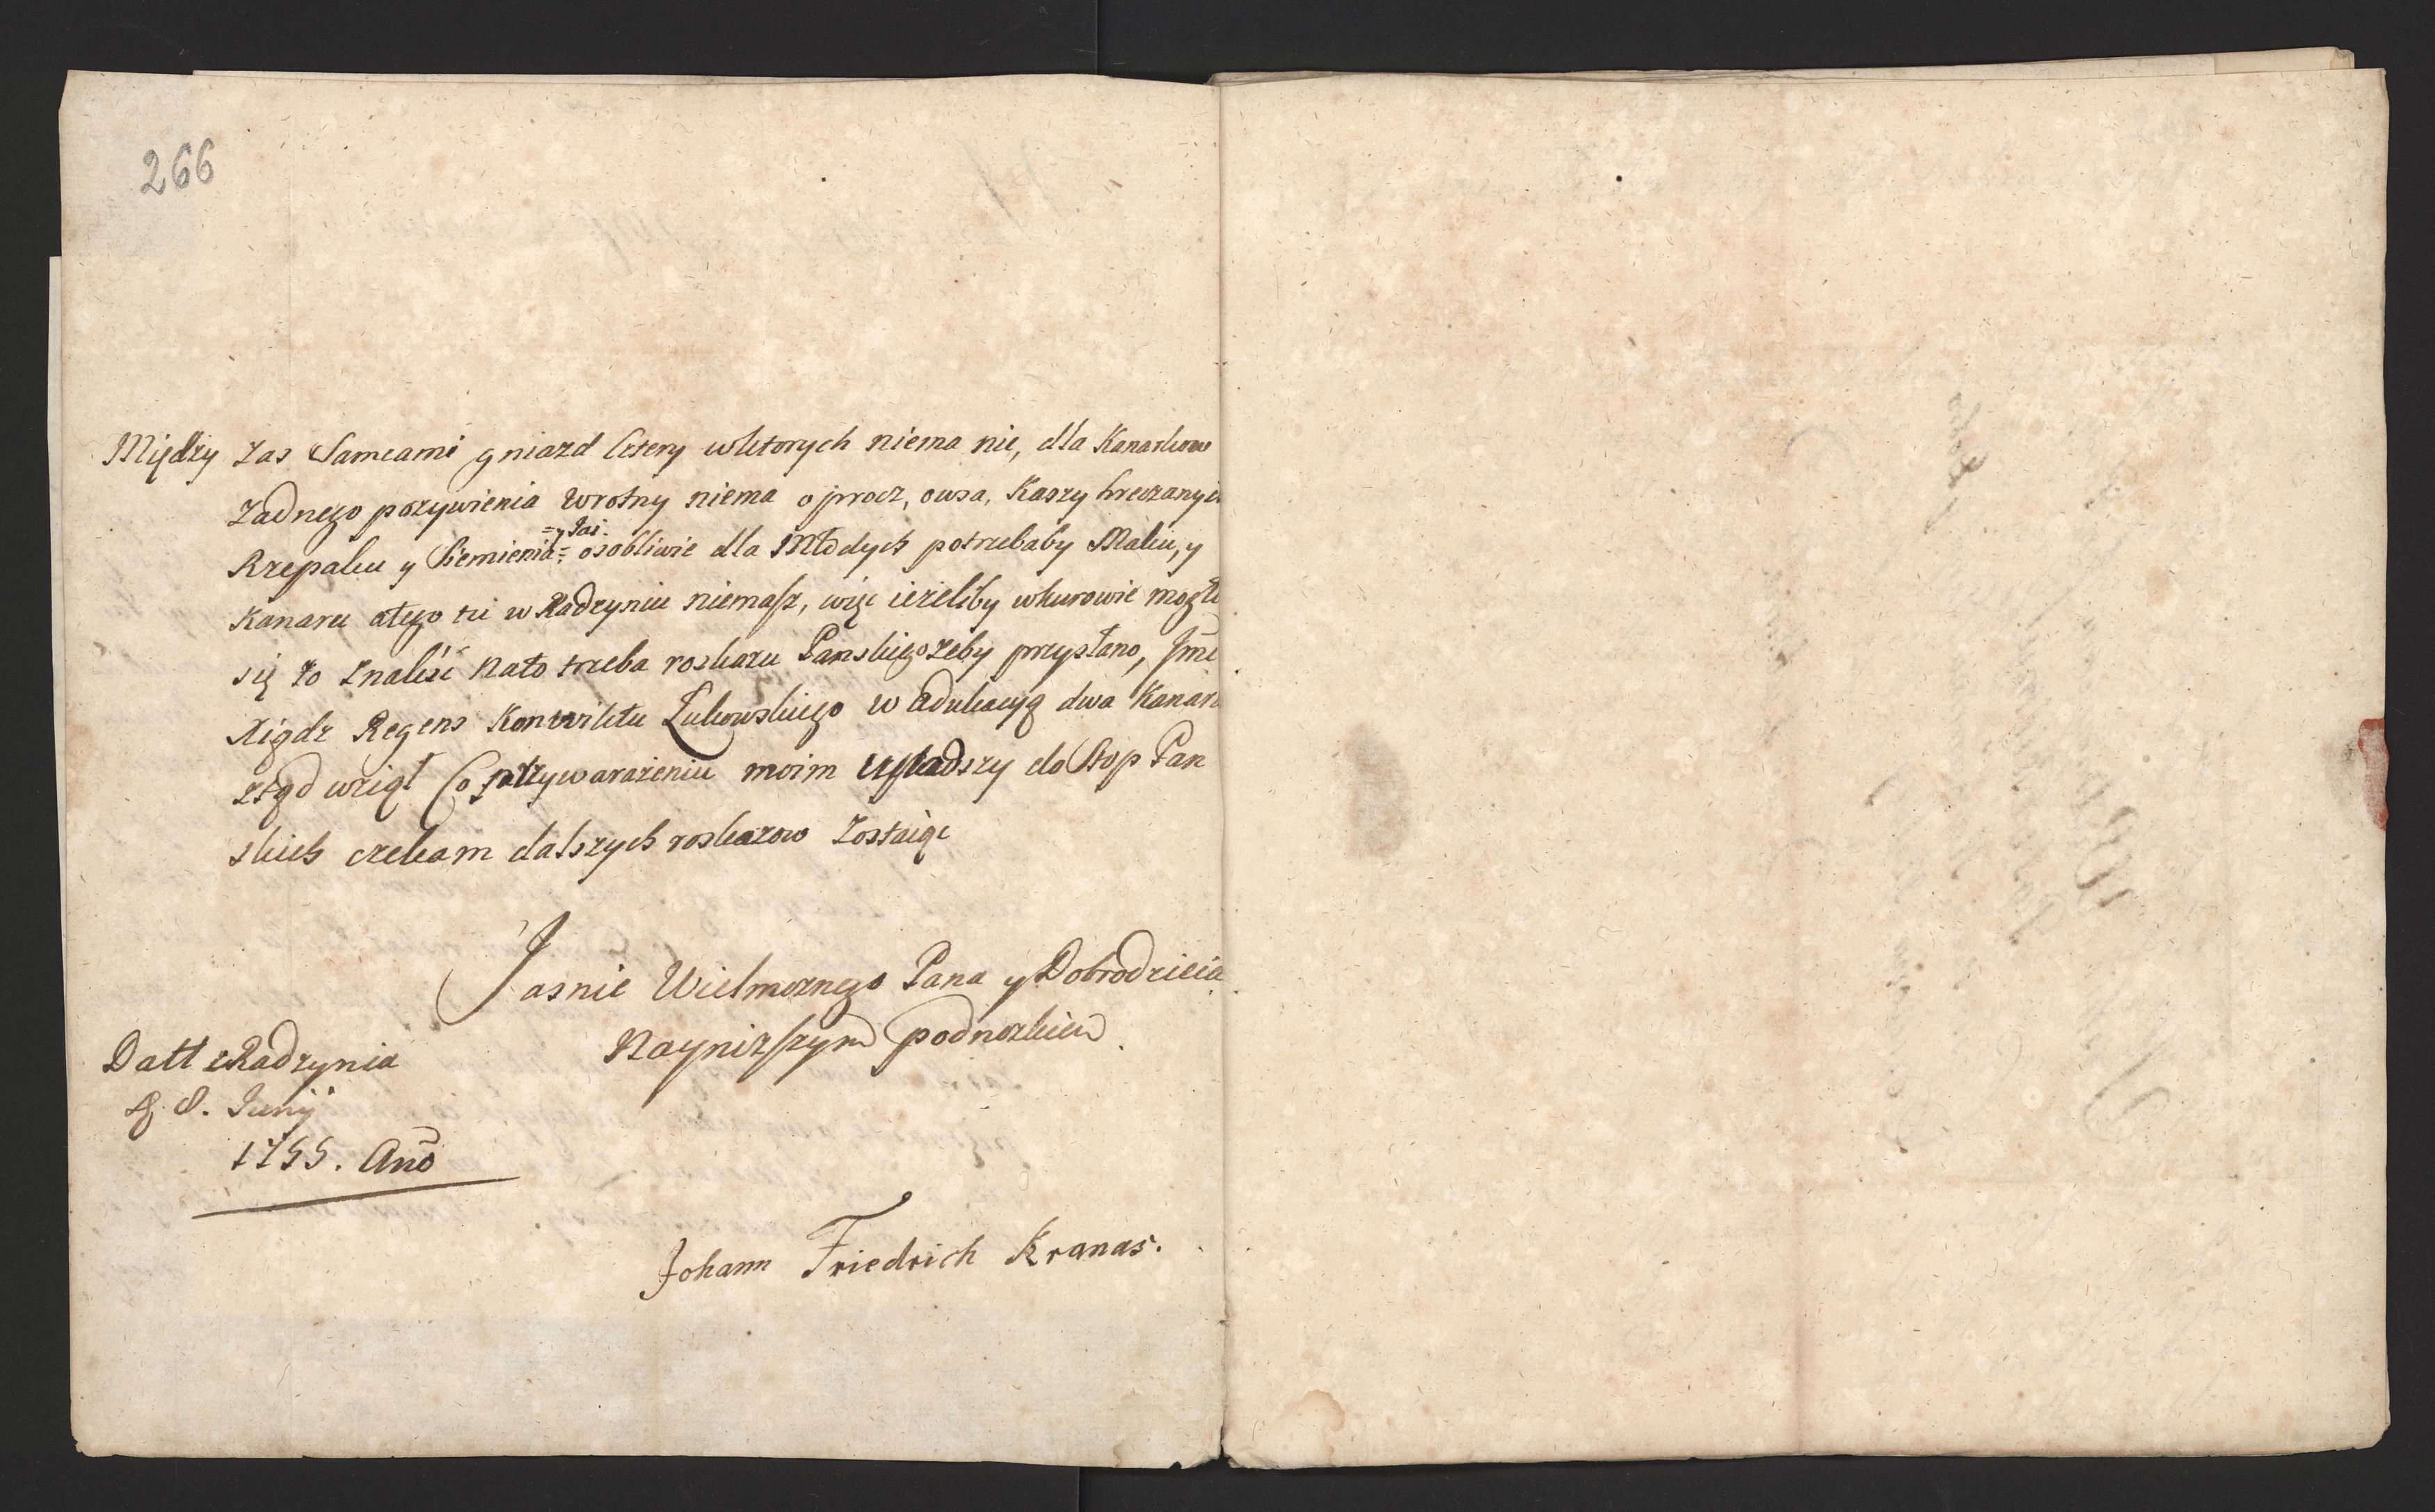 266
Między zas Samcami gniazd Cztery wktorych niema nic, dla Kanarkow
Zadnego pozywienia wrotny niema oprocz, owsa, Kaszy hreczanyi
=y Jai:
Rzepaku y Siemienia= osobliwie dla Młodych potrzebaby Maku, y
Kanaru atego tu w Radzyniu niemasz, więc ieżeliby wkurowie mogło
się to znaleść nato trzeba roskazu Panskiego zeby przysłano, Jmć
Xiądz Regens Konwiktu Łukowskiego w Adukacyą dwa Kanark
ztąd wziął Co przy wyrażeniu moim upadszy do Stop Pan
skich czekam dalszych roskazow Zostaiąc
Jasnie Wielmoznego Pana y Dobrodzieia
Nayniższym podnozkiem.
Datt z Radzynia
d. 8. Junij
1755. Año
Johann Friedrich Kranas.